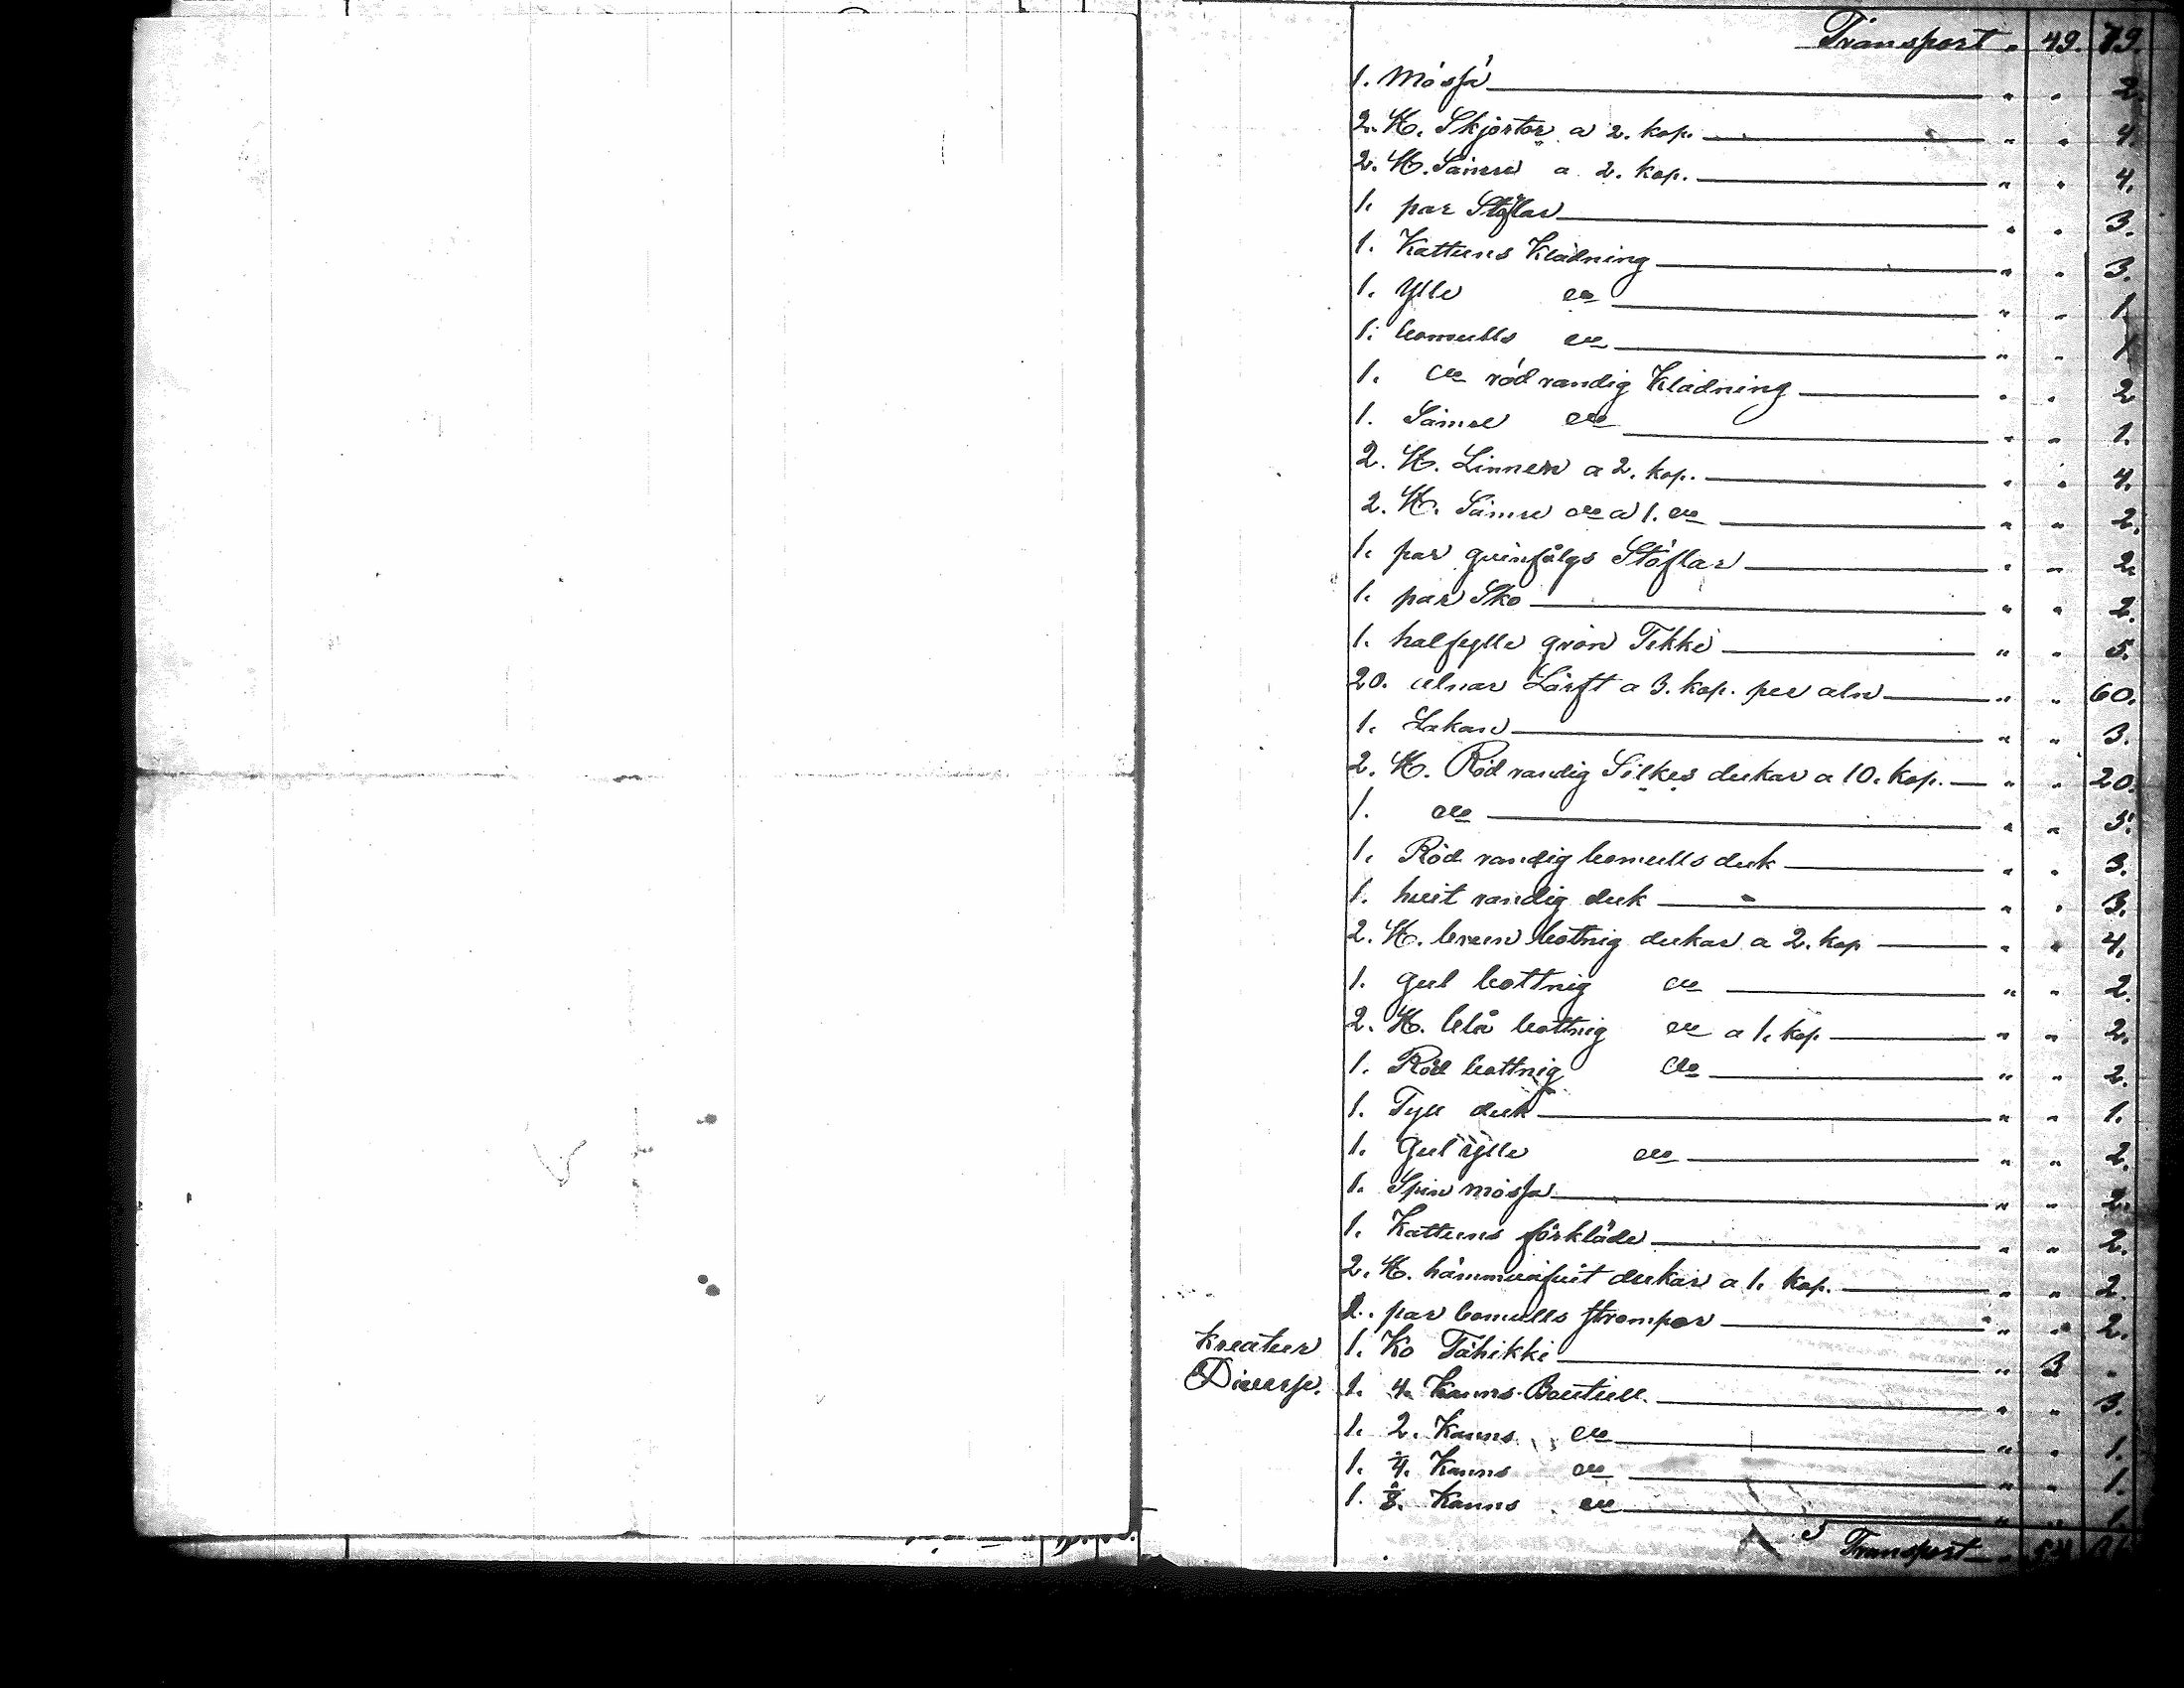 Transport „ 49. 79.
1. Mössa „ „ 2.
2. St. Skjortor a 2. kop. „ „ 4.
2. St. Sämre a 2. kop. „ „ 4.
1. par Stöflar „ „ 3.
1. Kattuns Klädning „ „ 3.
1. Ylle do „ „ 1.
1. bomulls do „ „ 1
1. do röd randig Klädning „ „ 2
1. Sämre do „ „ 1.
2. St. Linnen a 2. kop. „ „ 4.
2. St. Sämre do a 1. do „ „ 2.
1. par qvinfolgs Stöflar „ „ 2.
1. par Sko „ „ 2.
1. halfylle grön Tekki „ „ 5.
20. alnar Lärft a 3. kop. per aln „ „ 60.
1. Lakan „ „ 3.
2. St. Röd randig Silkes dukar a 10. kop. „ „ 20.
1. do „ „ 5.
1. Röd randig bomulls duk „ „ 3.
1. hvit randig duk „ „ 3.
2. St. brun botnig dukar a 2. kop „ „ 4.
1. gul bottnig do „ „ 2.
2. St. blå bottnig do a 1. kop „ „ 2.
1. Röd bottnig do „ „ 2.
1. Tyll duk „ „ 1.
1. Gul ylle do „ „ 2.
1. Spin mössa „ „ 2.
1. Kattuns förkläde „ „ 2.
2. St. dukar a 1. kop. „ „ 2.
2. par bomulls strumpor „ „ 2.
Kreatur 1. Ko Tähikki „ 3 „
Diverse. 1. 4. Kanns Boutiell. „ „ 3.
1. 2. Kanns do „ „ 1.
1. 4. Kanns do „ „ 1.
1. 8. Kanns do „ „ 1.
Transport „ 54